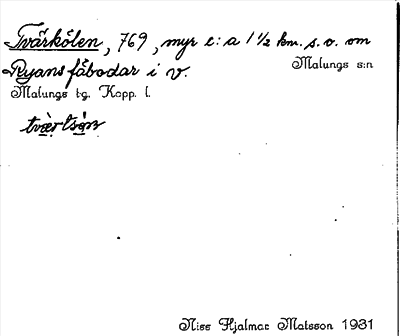 Tvärkölen, 769, myr c:a 1 1/2 km. s.v. om
Ryans fäbodar i v. Malungs s:n
Malungs tg. Kopp. l.
Nils Hjalmar Matsson 1931